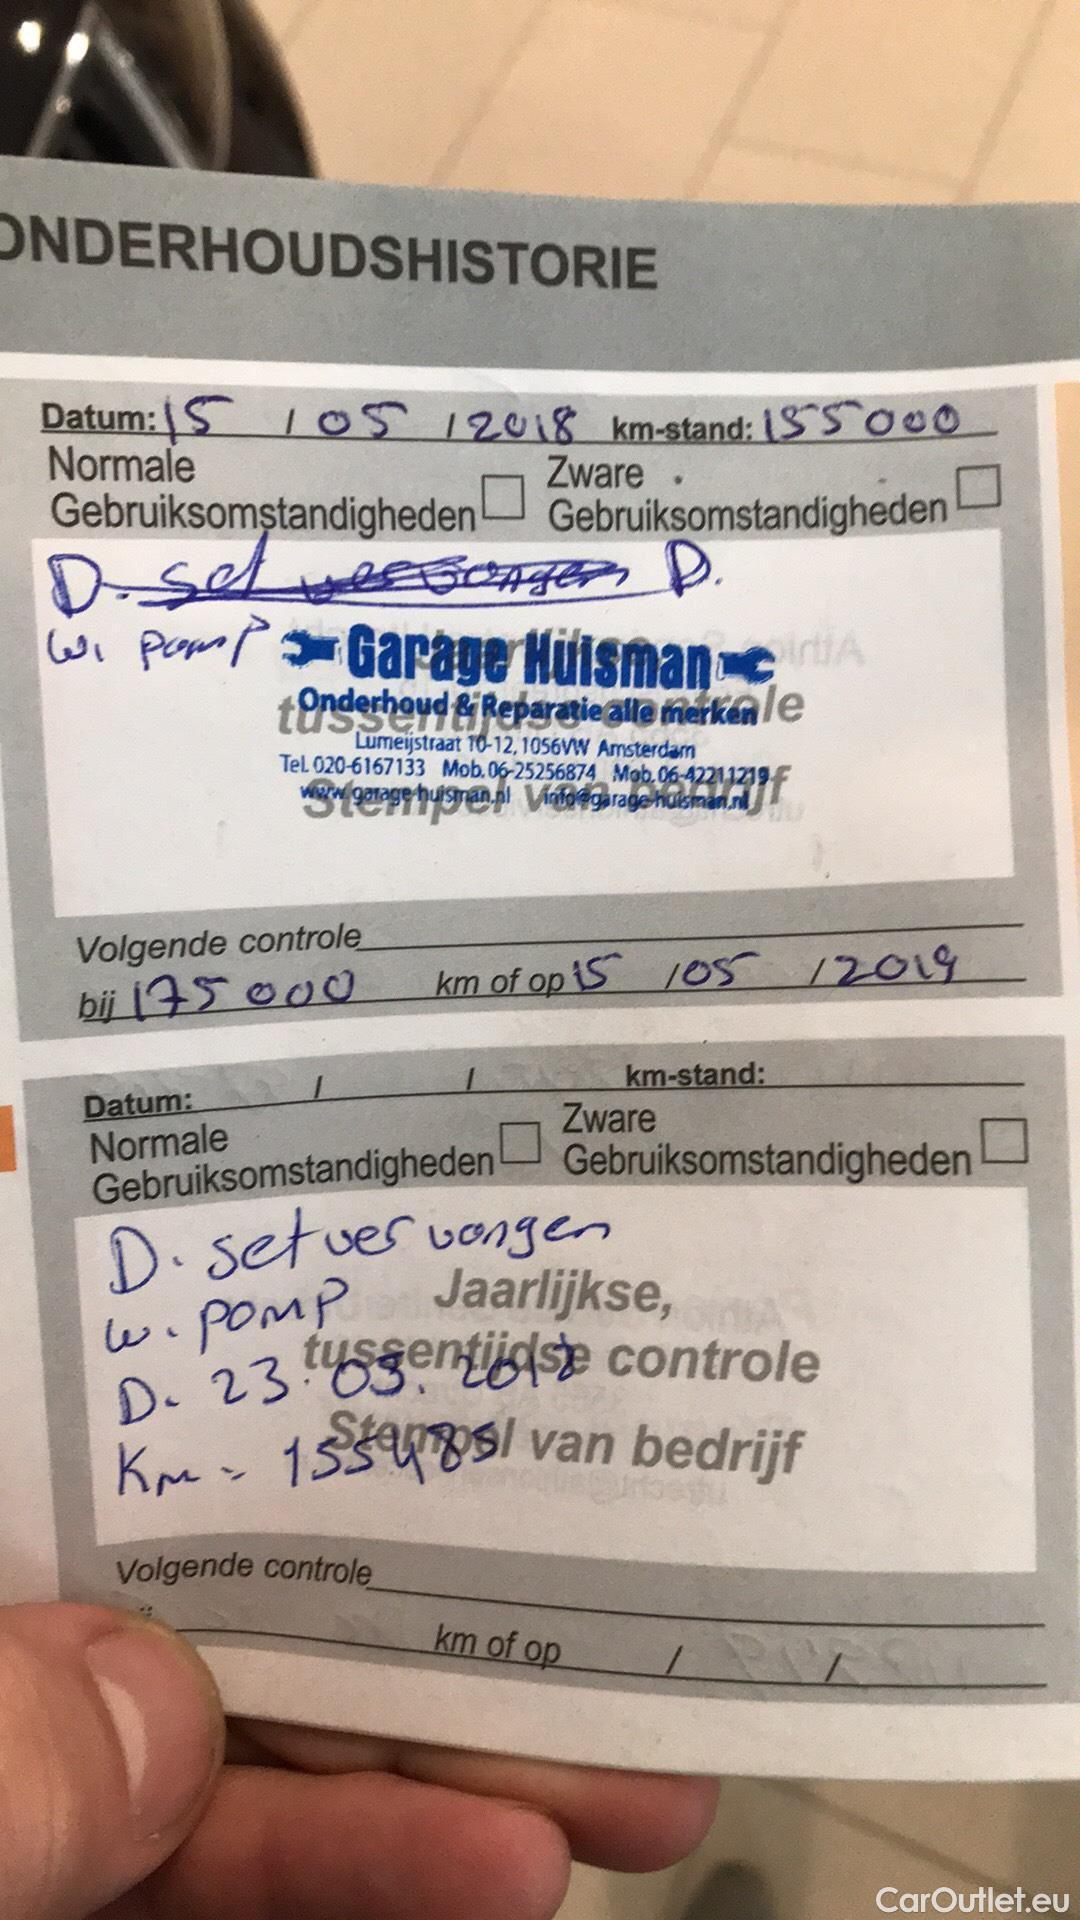 ONDERHOUDSHISTORIE
Datum: 15 / 05 / 2018 km-stand: 155000
Normale Gebruiksomstandigheden Zware Gebruiksomstandigheden
D. set vervangen D.
w. pomp
Garage Huisman
Onderhoud & Reparatie alle merken
Lumeijstraat 10-12, 1056VW Amsterdam
Tel. 020-6167133 Mob. 06-25256874 Mob. 06-42211219
www.garage-huisman.nl info@garage-huisman.nl
tussentijdse controle
Stempel van bedrijf
Volgende controle
bij 175000 km of op 15 /05 /2019
Datum: / / km-stand:
Normale Gebruiksomstandigheden Zware Gebruiksomstandigheden
D. set vervangen
w. pomp
Jaarlijkse,
tussentijdse controle
D. 23.03.2018
Stempel van bedrijf
Km = 155485
Volgende controle
km of op / /
CarOutlet.eu